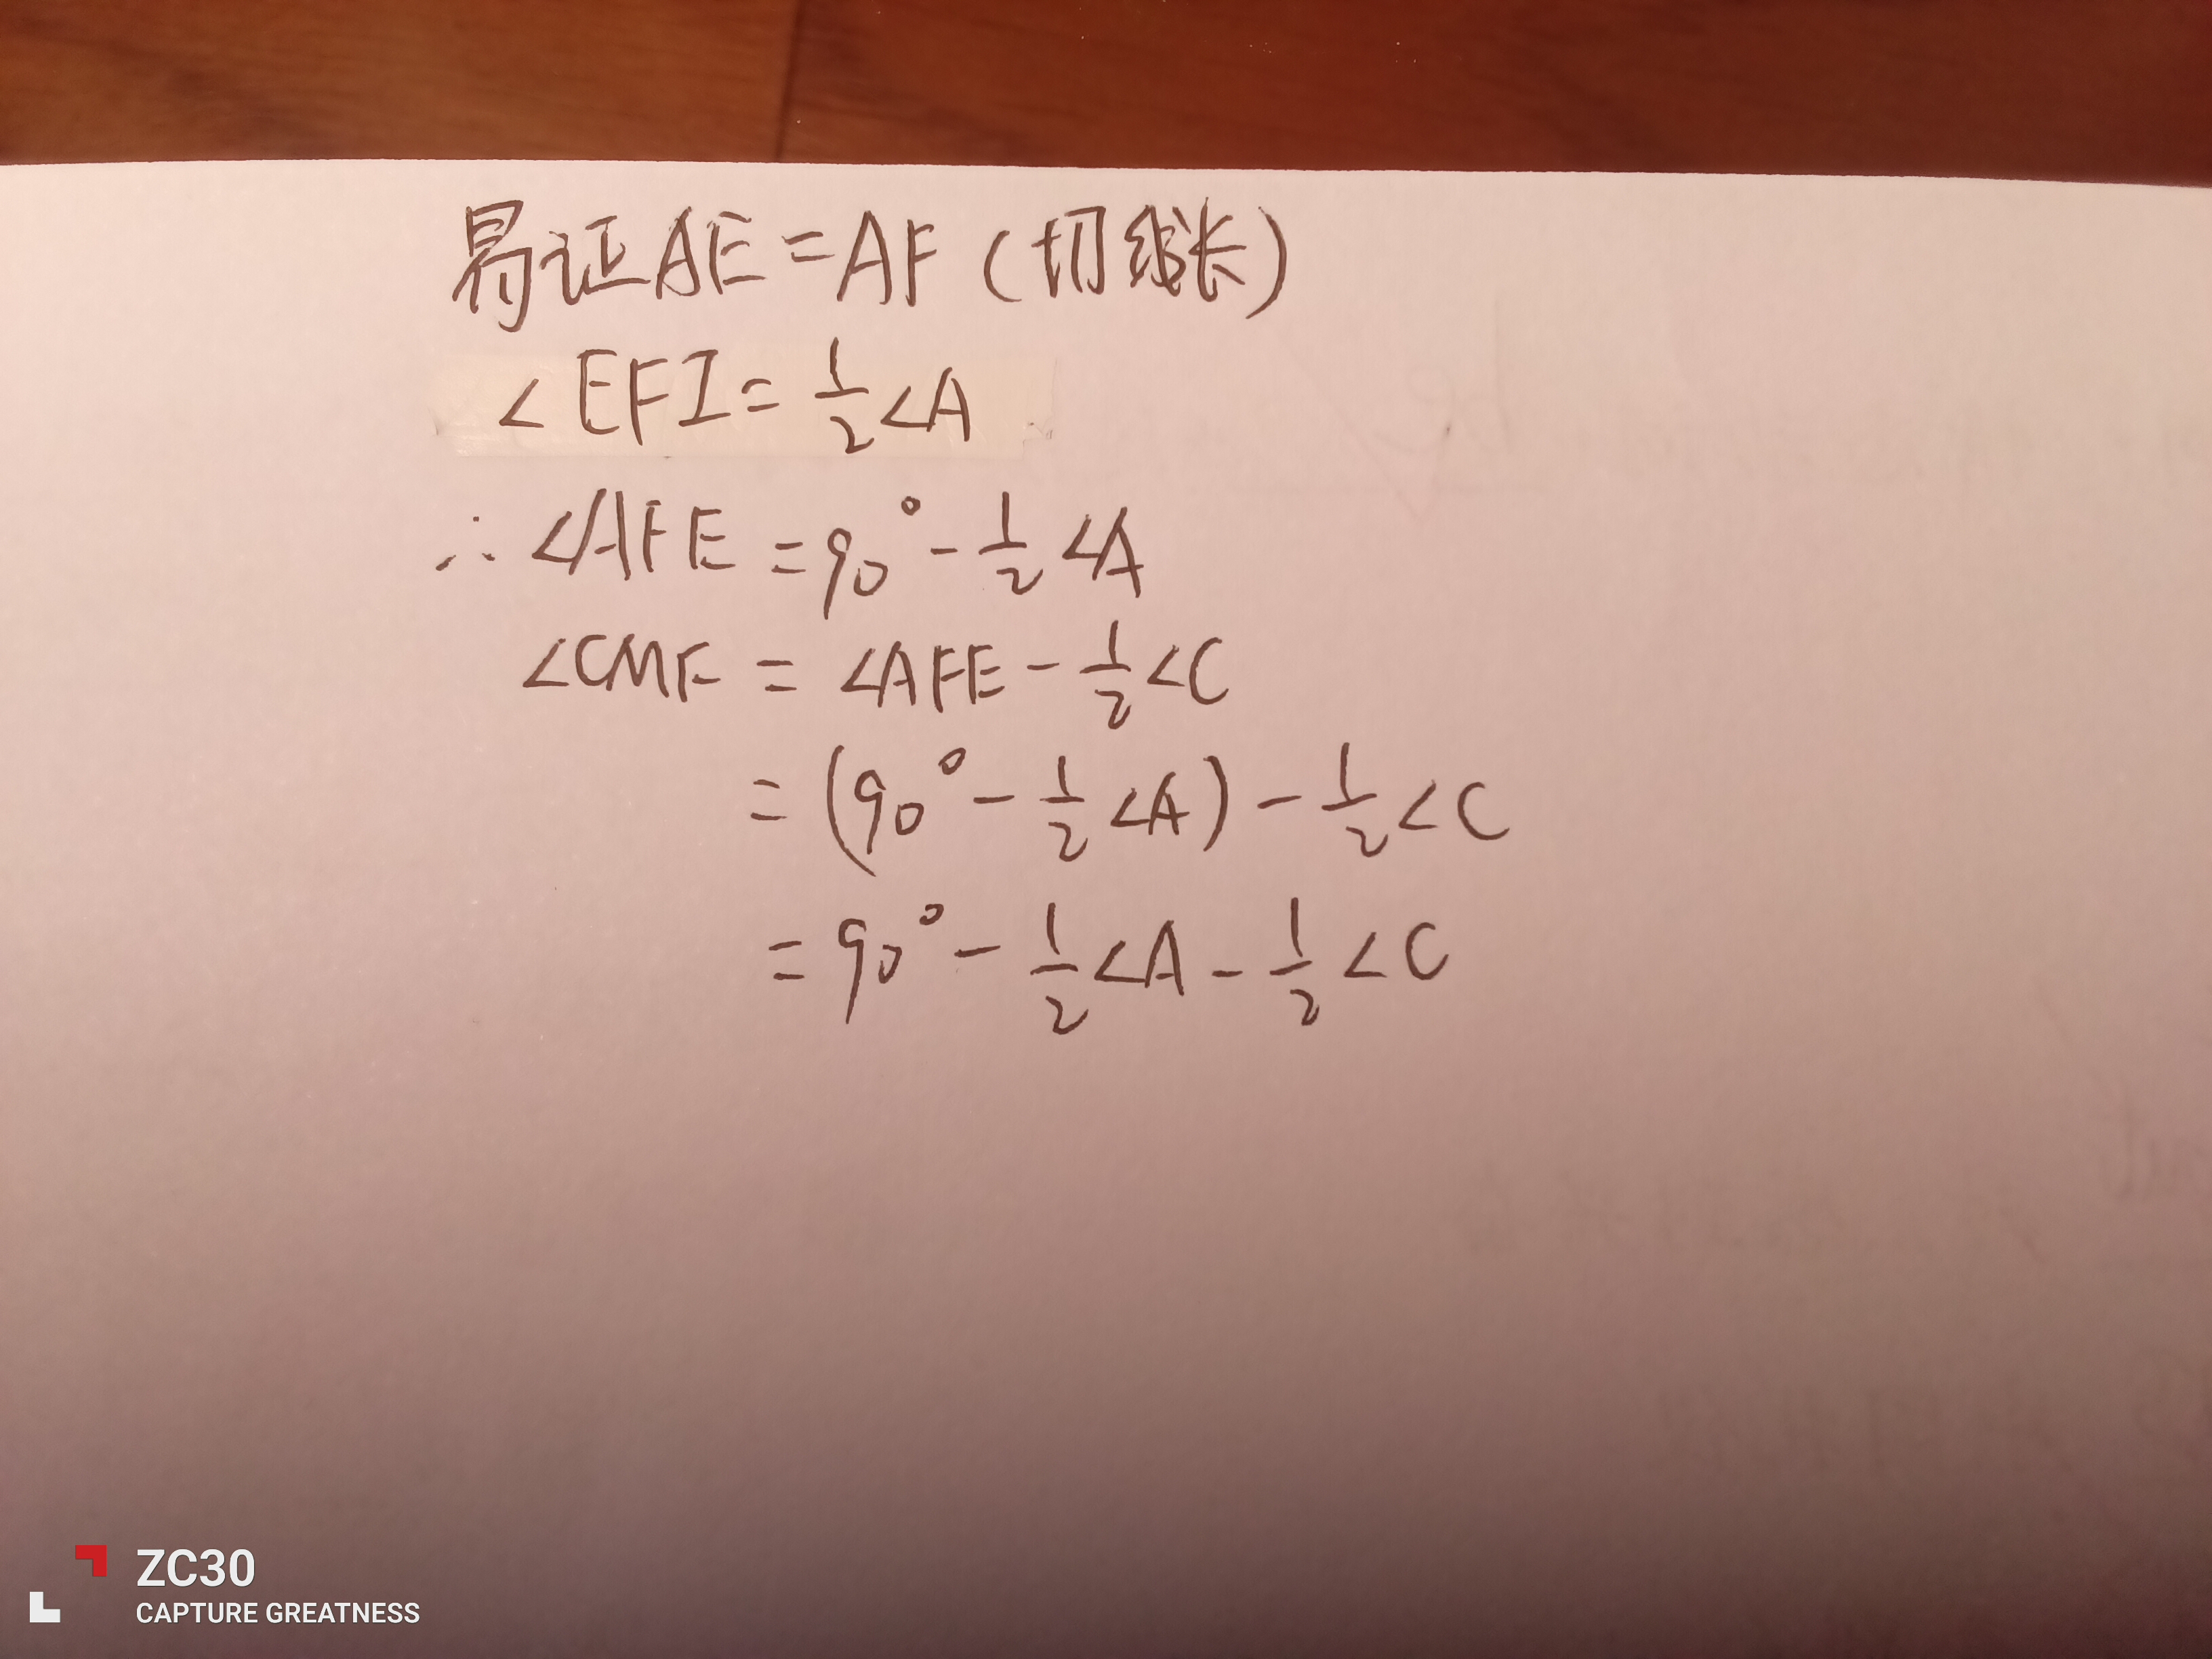 易证AE=AF(切线长)
∠EFI=1/2∠A
∴∠AFE=90°-1/2∠A
∠CMF=∠AFE-1/2∠C
=(90°-1/2∠A)-1/2∠C
=90°-1/2∠A-1/2∠C
ZC30
CAPTURE GREATNESS